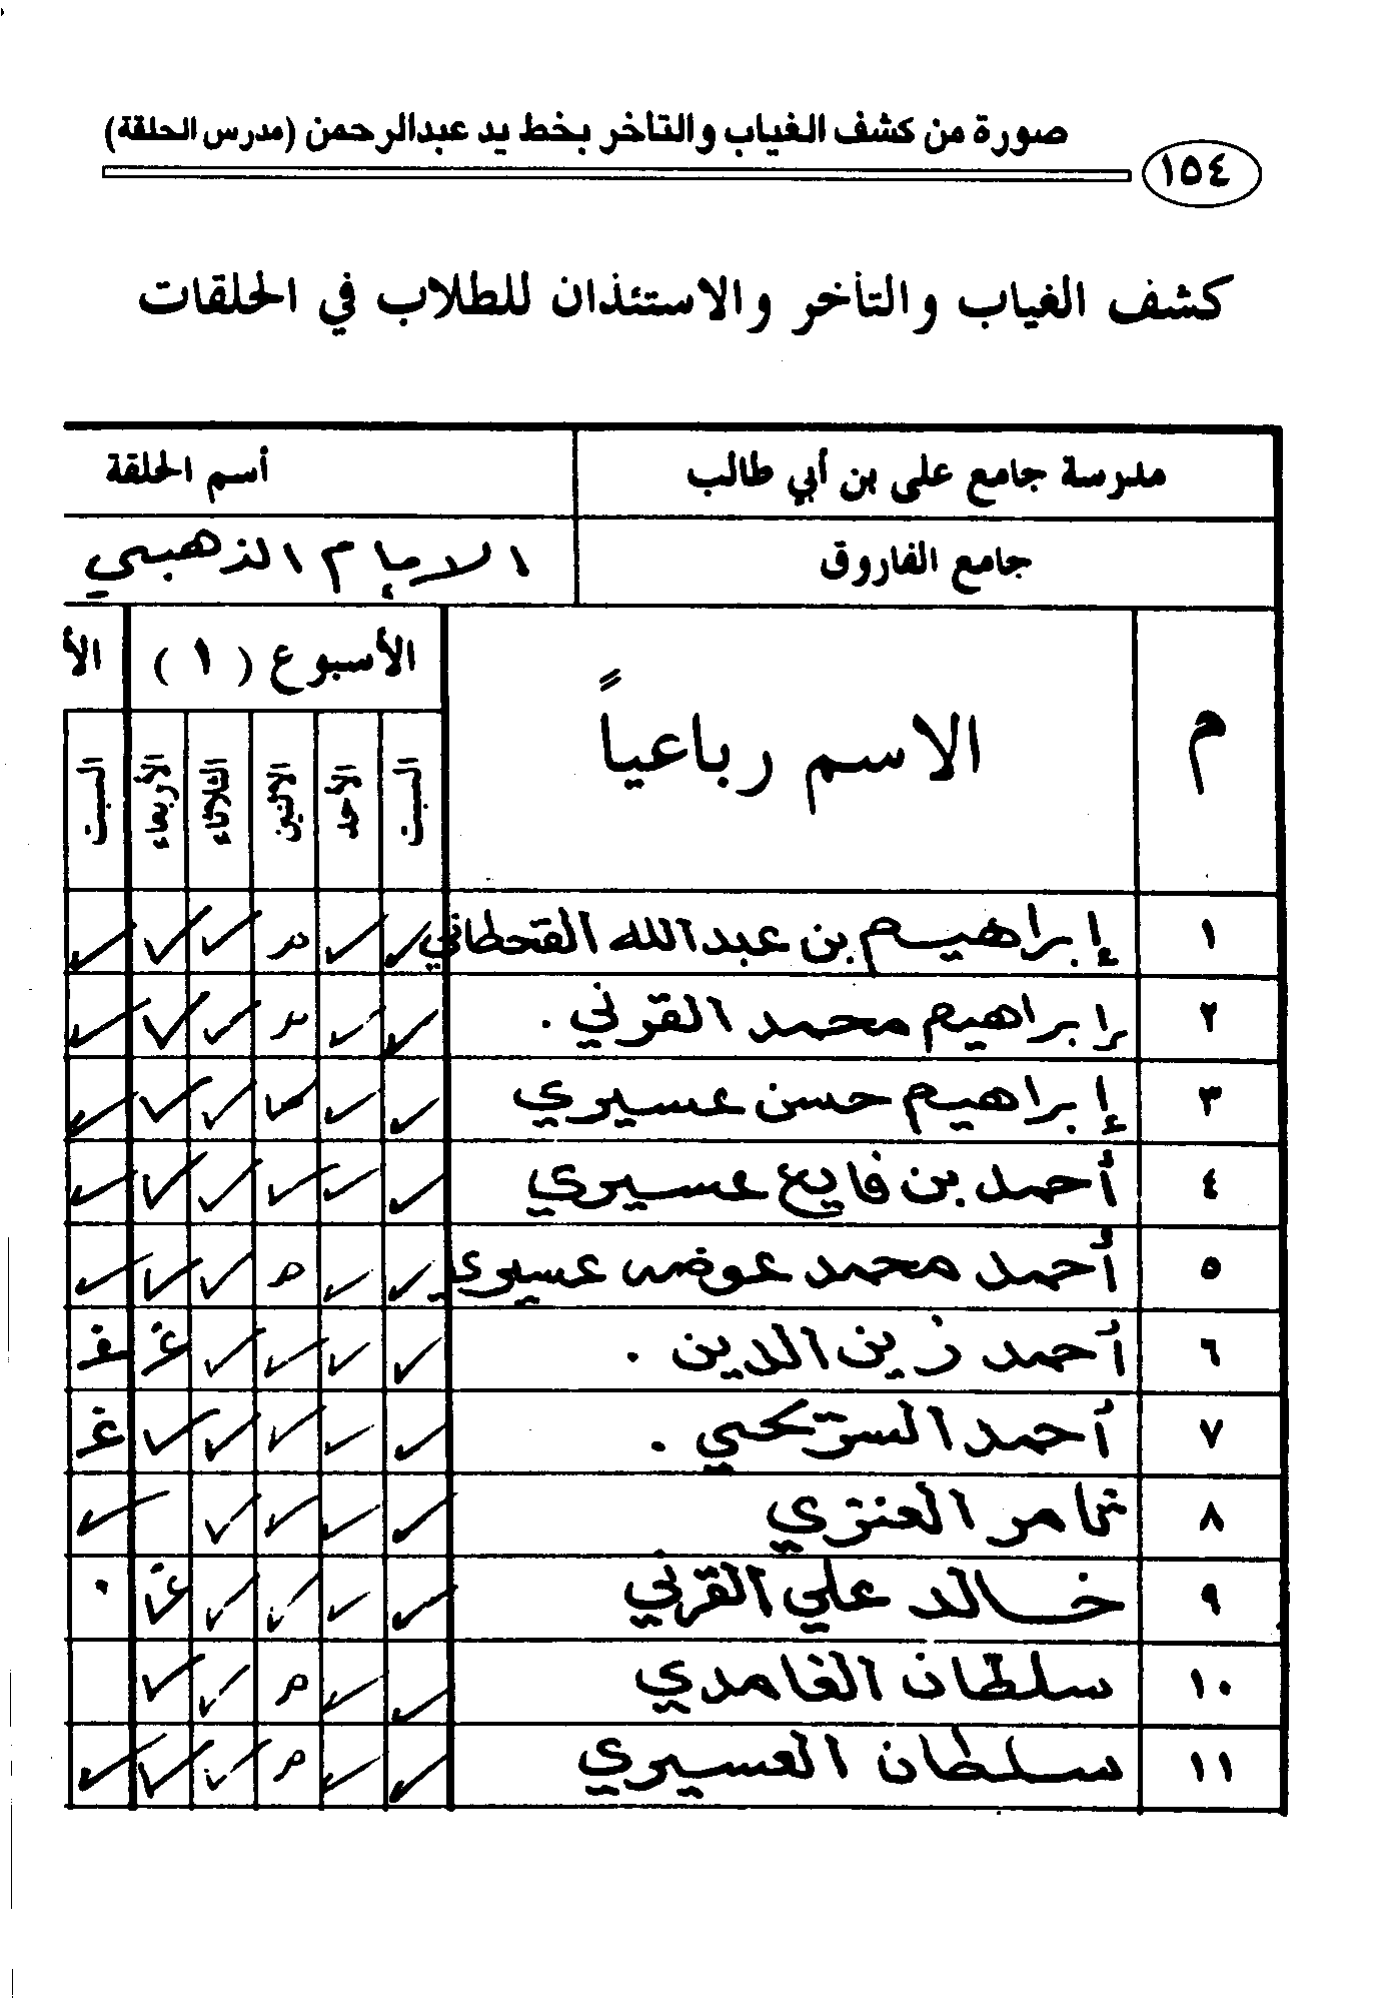 صورة من كشف الغياب والتأخر بخط يد عبدالرحمن (مدرس الحلقة)
١٥٤
كشف الغياب والتأخر والاستئذان للطلاب في الحلقات
مدرسة جامع على بن أبي طالب أسم الحلقة
جامع الفاروق الإمام الذهبي
م الاسم رباعياً الأسبوع (١) الأ
السبت الأحد الاثنين الثلاثاء الأربعاء السبت
١ إبراهيم بن عبدالله القحطاني ✓ ✓ ✓ ✓ ✓
٢ إبراهيم محمد القرني . ✓ ✓ ✓ ✓ ✓
٣ إبراهيم حسن عسيري ✓ ✓ ✓ ✓ ✓
٤ أحمد بن فايع عسيري ✓ ✓ ✓ ✓ ✓ ✓
٥ أحمد محمد عوض عسيري ✓ ✓ م ✓ ✓ ✓
٦ أحمد زين الدين . ✓ ✓ ✓ ✓ غ
٧ أحمد السريحي . ✓ ✓ ✓ ✓ ✓ غ
٨ ثامر العنزي ✓ ✓ ✓ ✓ ✓
٩ خالد علي القرني ✓ ✓ ✓ ✓ غ .
١٠ سلطان الغامدي ✓ ✓ م ✓ ✓
١١ سلطان العسيري ✓ ✓ م ✓ ✓ ✓